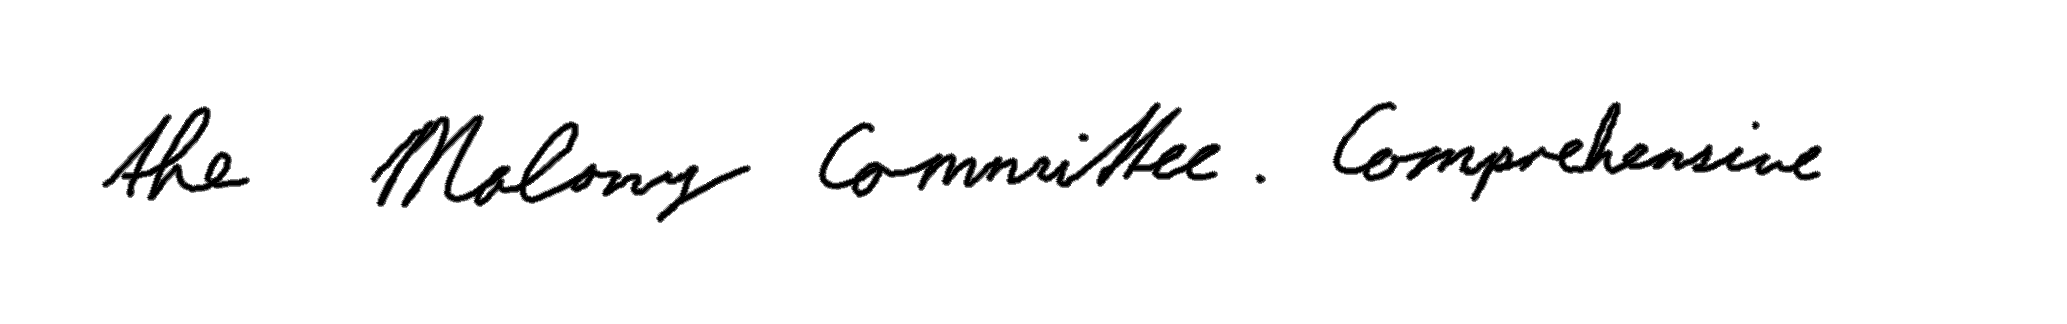 the Malony Committee. Comprehensive